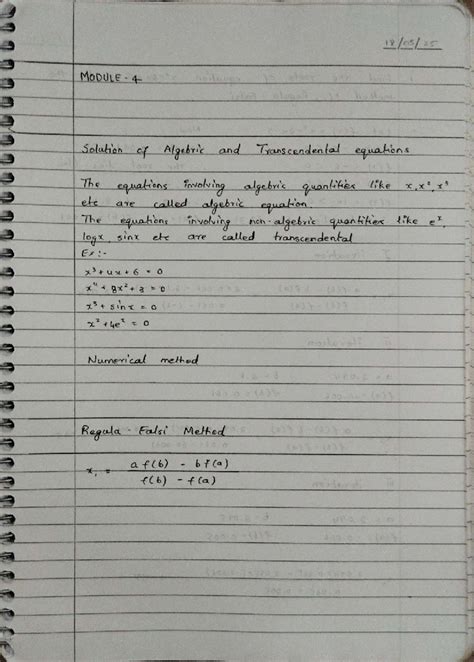 18/03/25
MODULE - 4
Solution of Algebric and Transcendental equations
The equations involving algebric quantities like x, x², x³
etc are called algebric equation.
The equations involving non-algebric quantities like eˣ,
logx, sinx etc are called transcendental
Ex:-
x³ + 4x + 6 = 0
x⁴ + 8x² + 3 = 0
x³ + sinx = 0
x² + 4eˣ = 0
Numerical method
Regula - Falsi Method
x₁ = a f(b) - b f(a) / f(b) - f(a)